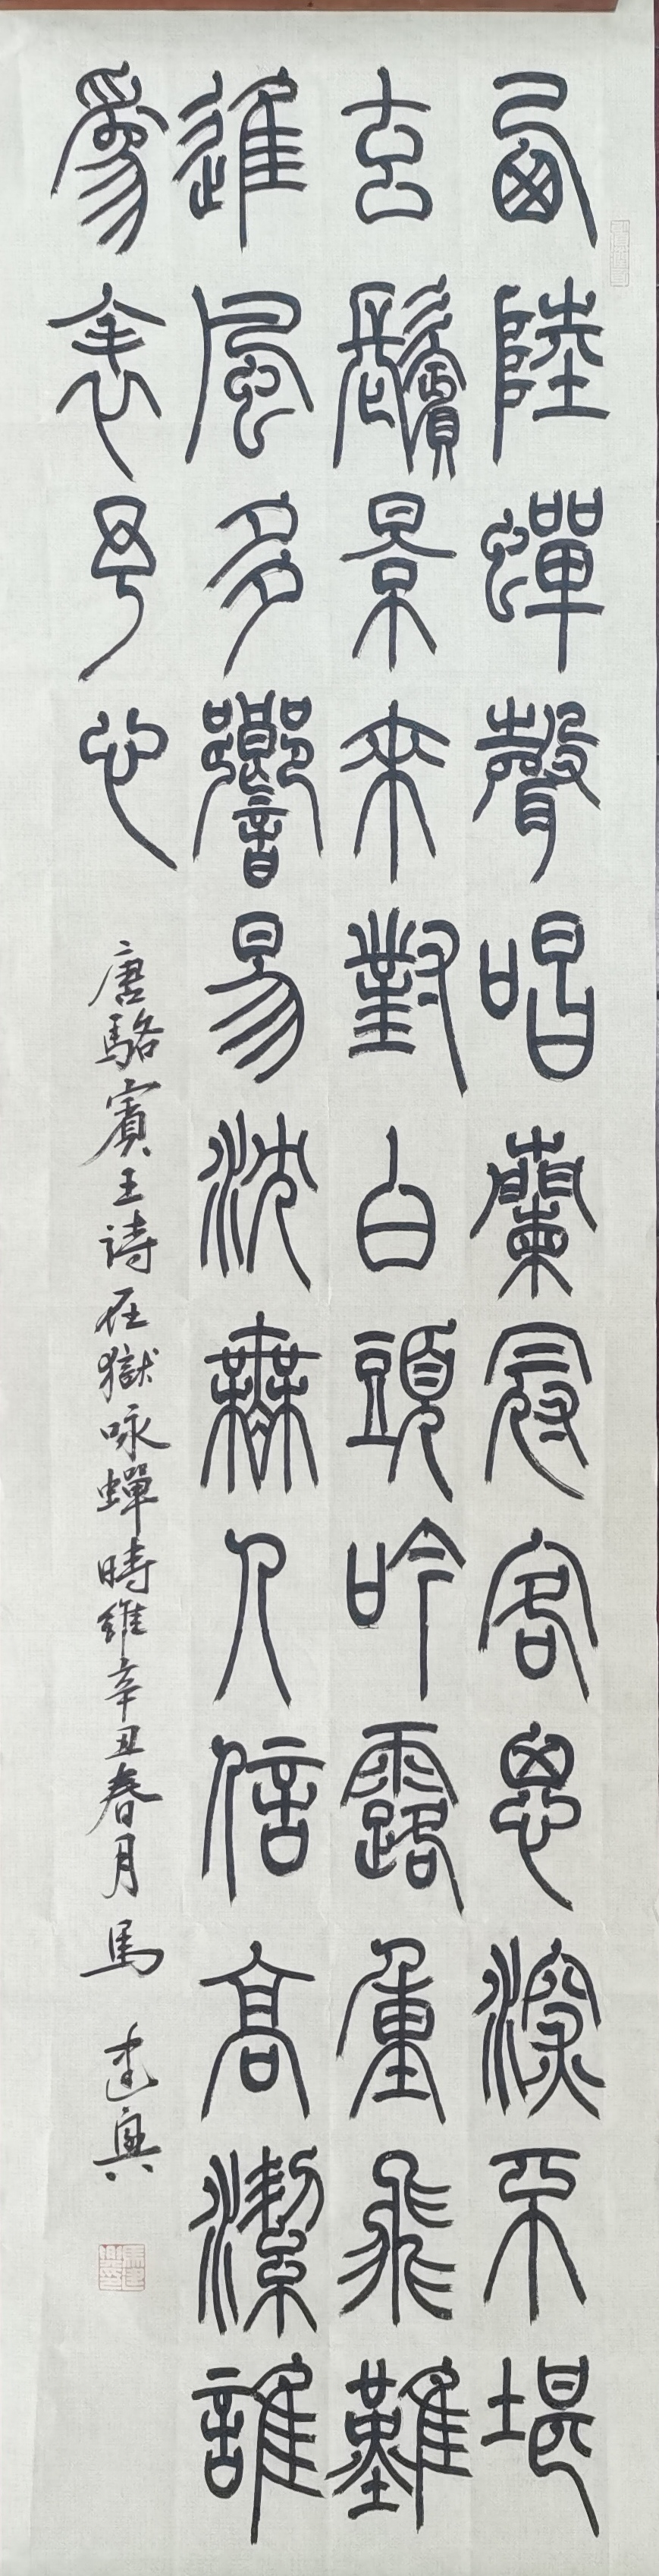 西陸蟬聲唱蘭冠客思深不堪
玄鬢景來對白頭吟露重飛難
進風多響易沈無人信高潔誰
為表予心
唐駱賓王詩在獄咏蟬時維辛丑春月馬建興